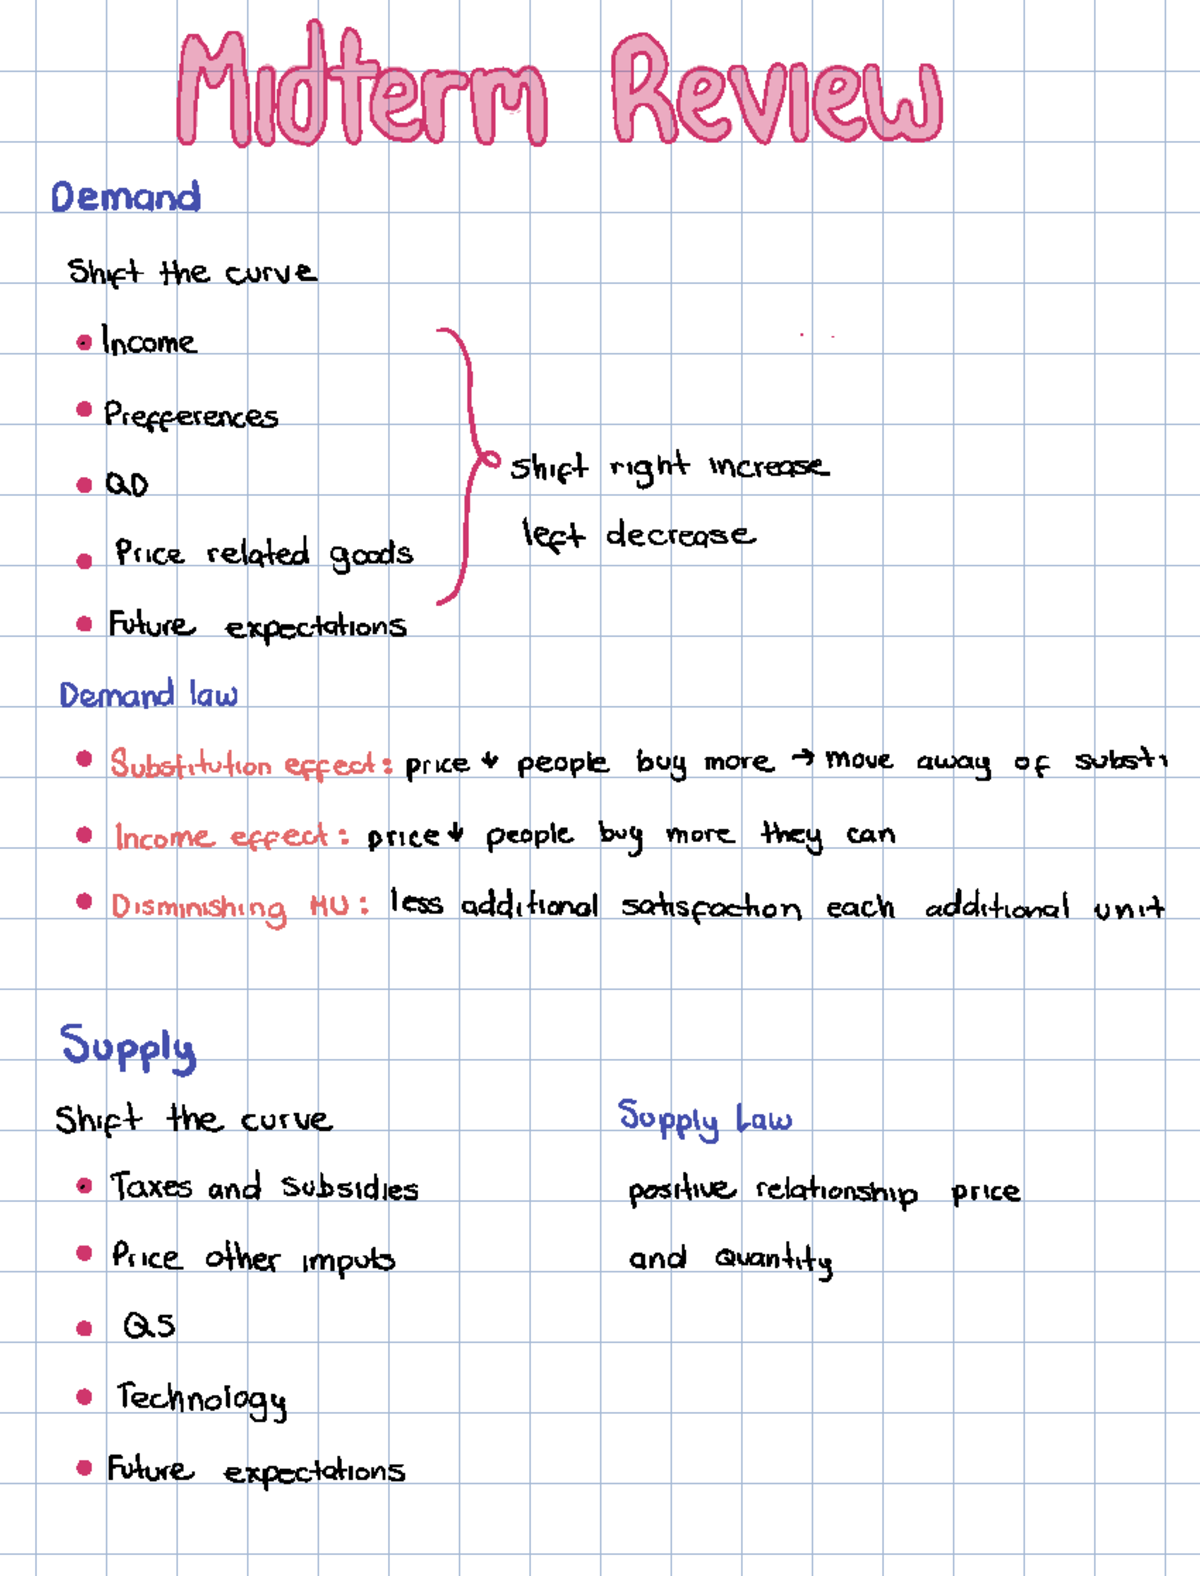 Midterm Review
Demand
Shift the curve
• Income
• Prefferences
• QD
• Price related goods
• Future expectations
shift right increase
left decrease
Demand law
• Substitution effect: price ↓ people buy more → move away of substi
• Income effect: price ↓ people buy more they can
• Disminishing MU: less additional satisfaction each additional unit
Supply
Shift the curve
• Taxes and subsidies
• Price other imputs
• QS
• Technology
• Future expectations
Supply Law
positive relationship price
and quantity